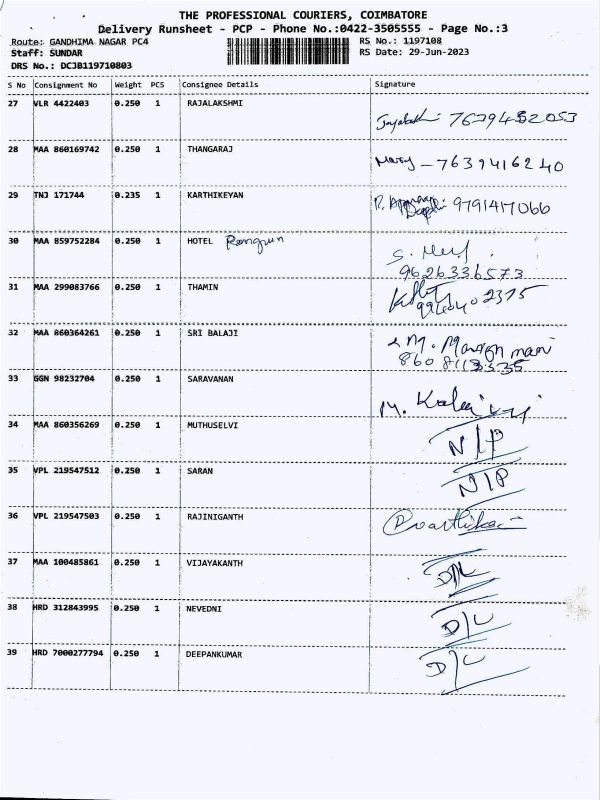 THE PROFESSIONAL COURIERS, COIMBATORE
Delivery Runsheet - PCP - Phone No.:0422-3505555 - Page No.:3
Route: GANDHIMA NAGAR PC4 RS No.: 1197108
Staff: SUNDAR RS Date: 29-Jun-2023
DRS No.: DCJB119710803
S No Consignment No Weight PCS Consignee Details Signature
27 VLR 4422403 0.250 1 RAJALAKSHMI
28 MAA 860169742 0.250 1 THANGARAJ Mary - 7639416240
29 TNJ 171744 0.235 1 KARTHIKEYAN 9791417066
30 MAA 859752284 0.250 1 HOTEL
9626336573
31 MAA 299083766 0.250 1 THAMIN
32 MAA 860364261 0.250 1 SRI BALAJI
33 GGN 98232704 0.250 1 SARAVANAN
34 MAA 860356269 0.250 1 MUTHUSELVI N/P
35 VPL 219547512 0.250 1 SARAN N/P
36 VPL 219547503 0.250 1 RAJINIGANTH
37 MAA 100485861 0.250 1 VIJAYAKANTH D/L
38 HRD 312843995 0.250 1 NEVEDNI D/L
39 HRD 7000277794 0.250 1 DEEPANKUMAR D/L